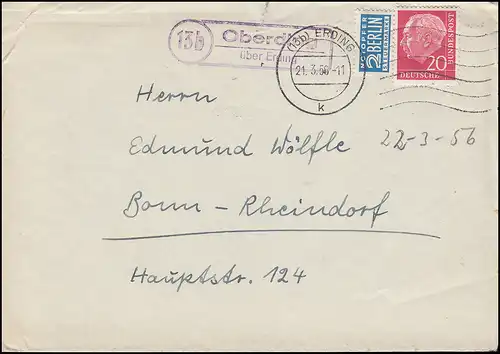 13b
über Erding
(13b) ERDING
21.3.56-11
k
NOTOPFER
2 BERLIN
STEUERMARKE
20
DEUTSCHE
BUNDESPOST
Herrn
Edmund Wölfle
22-3-56
Bonn-Rheindorf
Hauptstr. 124